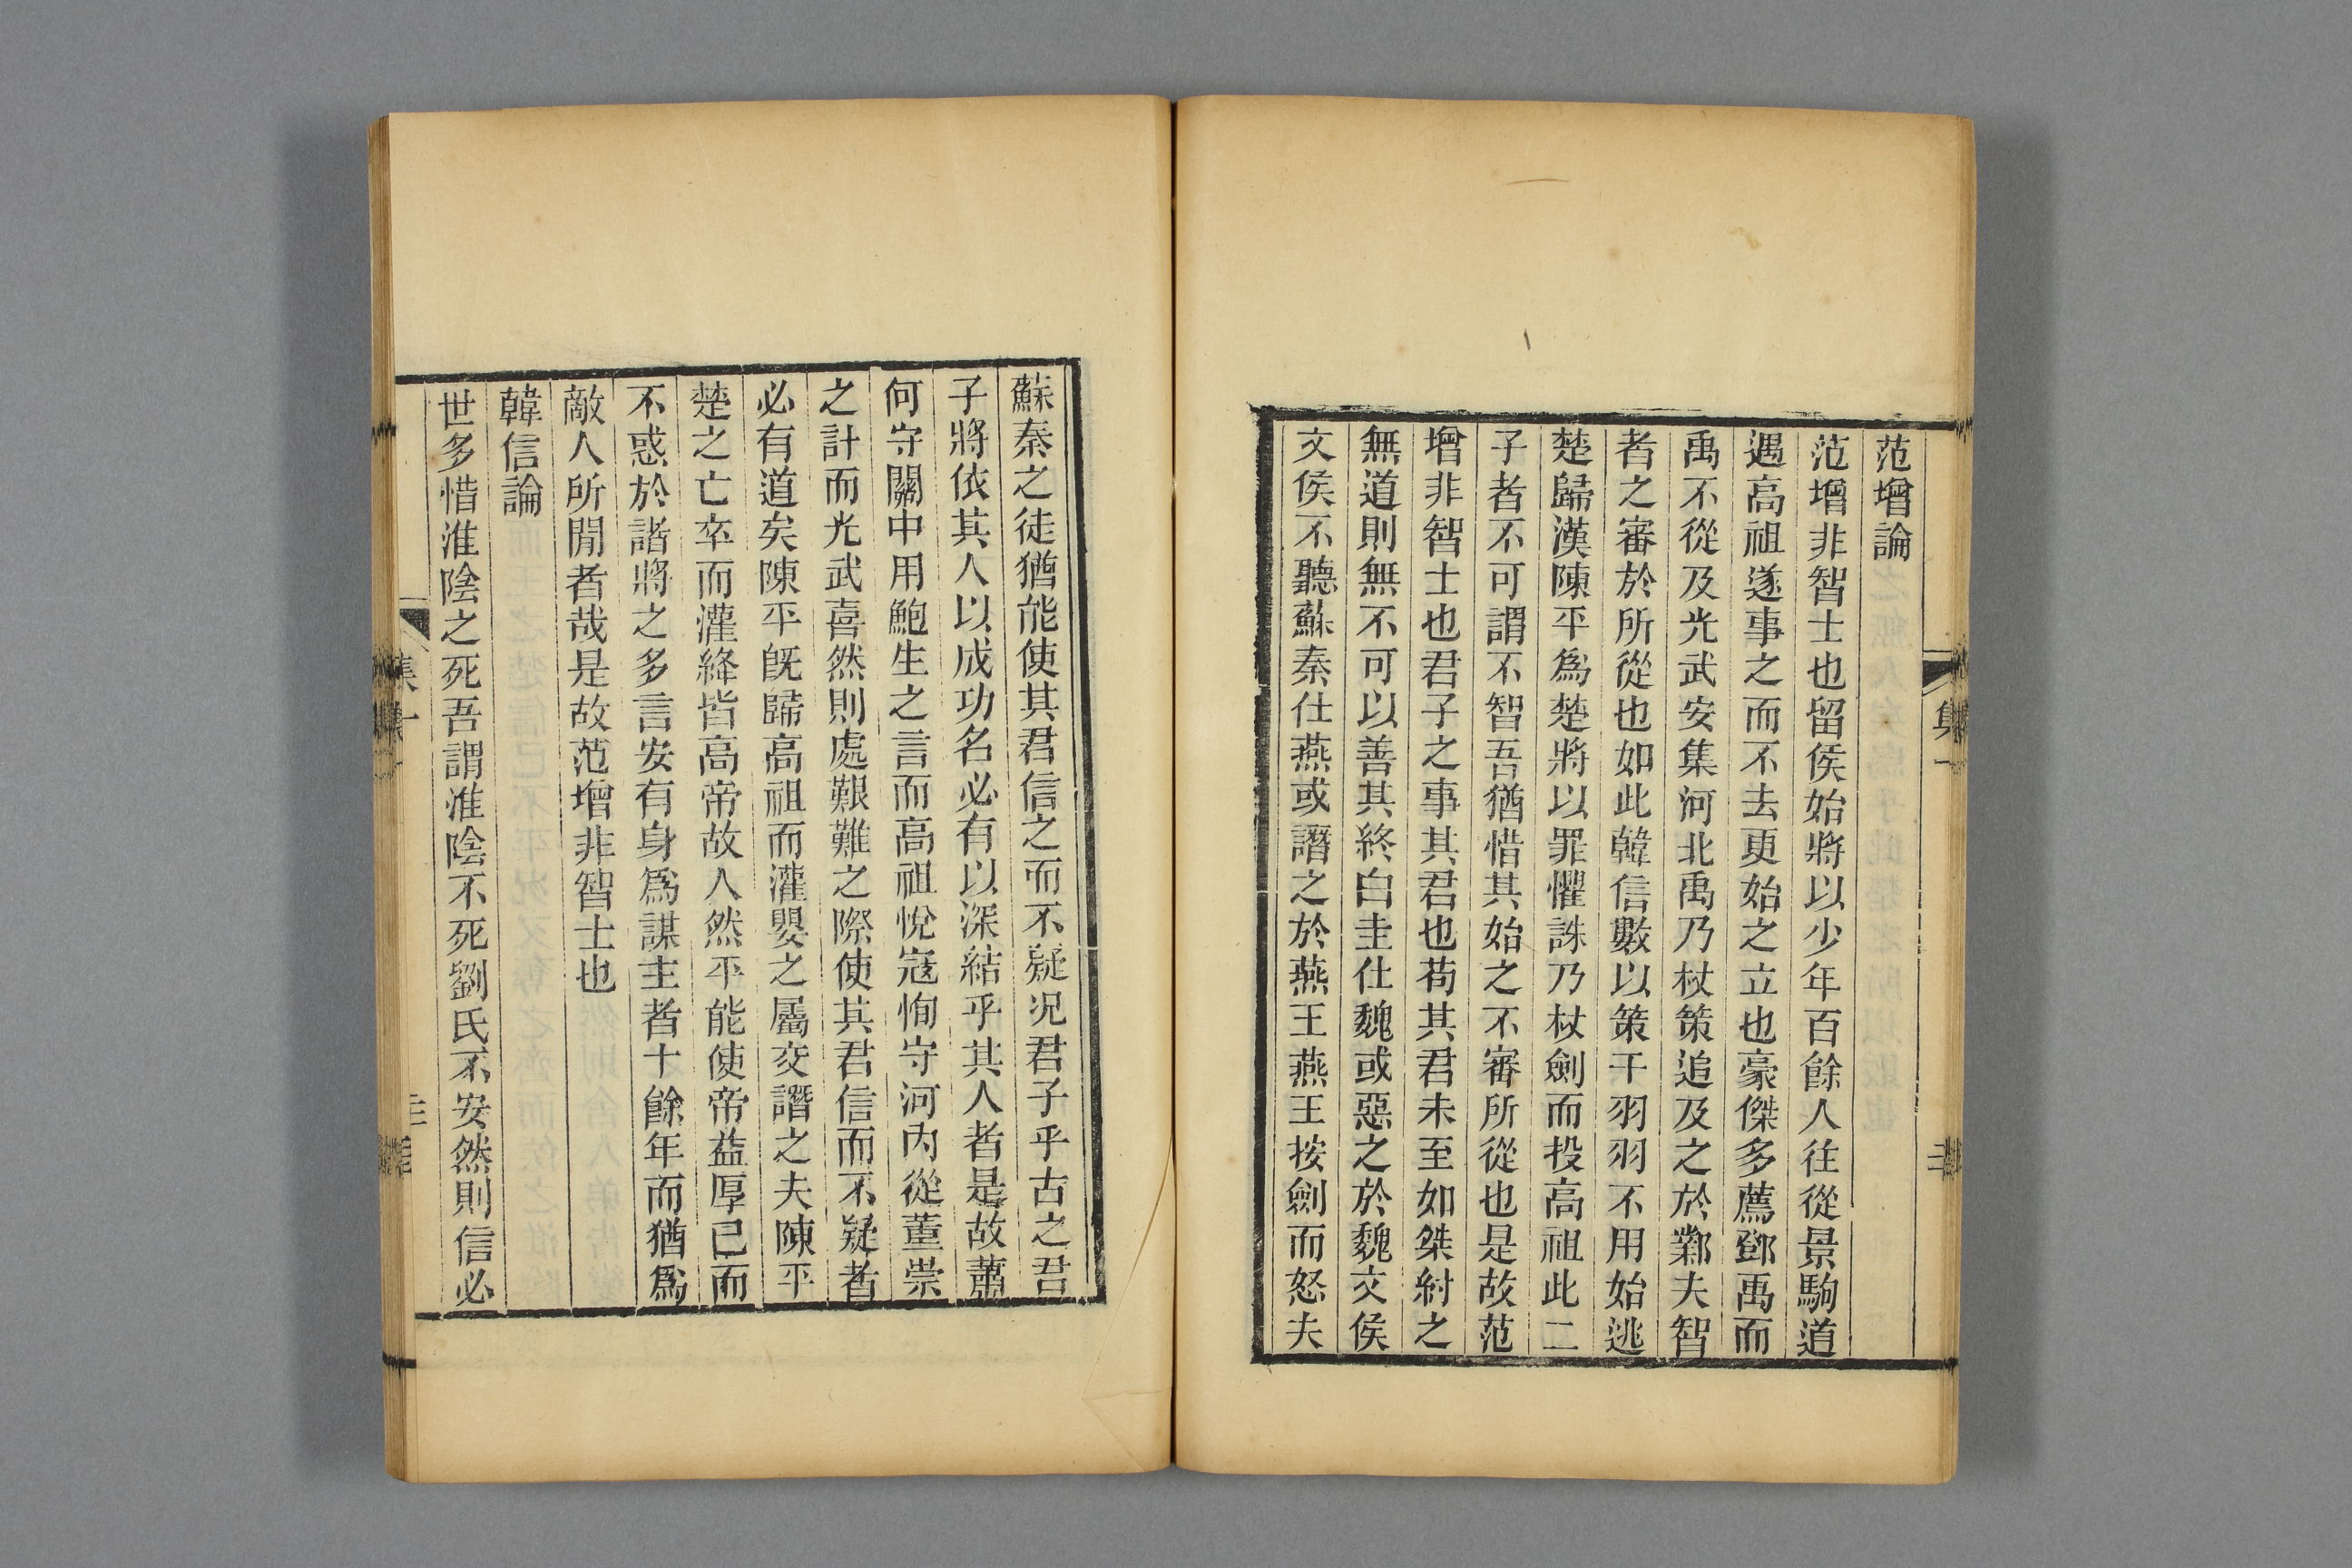 范增論
范增非智士也留侯始將以少年百餘人往從景駒道
遇高祖遂事之而不去更始之立也豪傑多薦鄧禹而
禹不從及光武安集河北禹乃杖策追及之於鄴夫智
者之審於所從也如此韓信數以策干羽羽不用始逃
楚歸漢陳平爲楚將以罪懼誅乃杖劍而投高祖此二
子者不可謂不智吾猶惜其始之不審所從也是故范
增非智士也君子之事其君也苟其君未至如桀紂之
無道則無不可以善其終白圭仕魏或惡之於魏文侯
文侯不聽蘇秦仕燕或譖之於燕王燕王按劍而怒夫
蘇秦之徒猶能使其君信之而不疑況君子乎古之君
子將依其人以成功名必有以深結乎其人者是故蕭
何守關中用鮑生之言而高祖悅寇恂守河內從董崇
之計而光武喜然則處艱難之際使其君信而不疑者
必有道矣陳平旣歸高祖而灌嬰之屬交譖之夫陳平
楚之亡卒而灌絳皆高帝故人然平能使帝益厚已而
不惑於諸將之多言安有身爲謀主者十餘年而猶爲
敵人所閒者哉是故范增非智士也
韓信論
世多惜淮陰之死吾謂淮陰不死劉氏不安然則信必